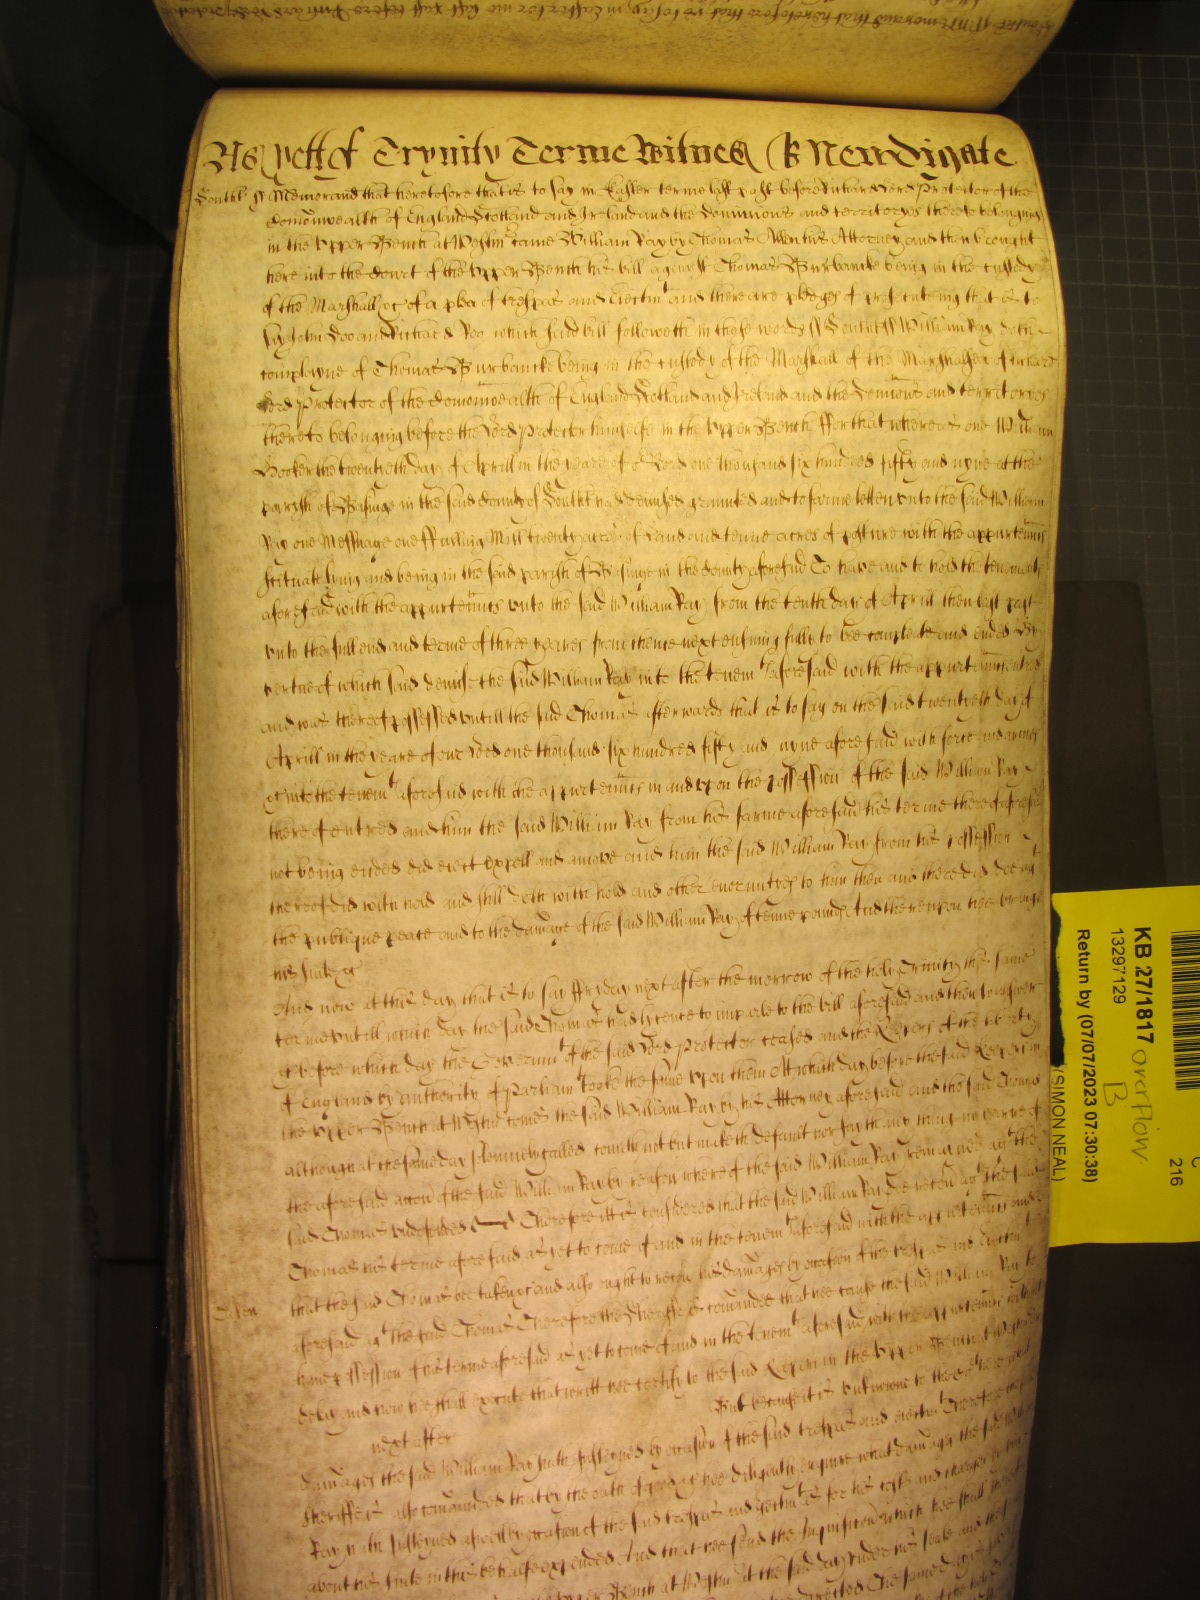 As yett of Trynity Terme Witnes R Newdigate
Southt ss Memorand that heretofore that is to say in Easter terme last past before Richard Lord Protector of the
Comonwealth of England Scotland and Ireland and the Dominions and territoryes thereto belonging
in the Upper Bench at Westmr came William Ray by Thomas Allen his Attorney and then brought
here into the Court of the Upper Bench his bill against Thomas Burbancke being in the custody
of the Marshall &c of a plea of trespas and eiectmt and there are pledges of prosecuting that is to
say John Doo and Richard Roo which said bill followeth in these words ss Southt ss William Ray doth
complayne of Thomas Burbancke being in the custody of the Marshall of the Marshalsea of Richard
Lord Protector of the Comonwealth of England Scotland and Ireland and the Dominions and territoryes
thereto belonging before the Lord Protector himselfe in the Upper Bench ffor that whereas one William
Hooker the twentieth day of Aprill in the yeare of or Lord one thousand six hundred fifty and nyne at the
parish of Basinge in the said County of Southt had demised graunted and to farme letten unto the said William
Ray one Messuage one ffulling Mill twenty acres of Land and tenne acres of pasture with the appurtennts
scituate lying and being in the said parish of Basinge in the County aforesaid To have and to hold the tenements
aforesaid with the appurtennts unto the said William Ray from the tenth day of Aprill then last past
unto the full end and terme of three yeares from thence next ensuing fully to bee compleate and ended By
vertue of which said demise the said William Ray into the tenemts aforesaid with the appurtennts entred
and was thereof possessed untill the said Thomas afterwards that is to say on the said twentyeth day of
Aprill in the yeare of our Lord one thousand six hundred fifty and nyne aforesaid with force and armes
&c into the tenemts aforesaid with the appurtennts in and upon the possession of the said William Ray
thereof entred and him the said William Ray from his farme aforesaid his terme thereof aforesaid
not being ended did eiect expell and amove and him the said William Ray from his possession
thereof did with hold and still doth with hold and other enormityes to him then and there did against
the publique peace and to the damage of the said William Ray of tenne pounds And thereupon hee brings
his suite &c
And now at this day that is to say ffryday next after the morrow of the holy Trinity this same
terme untill which day the said Thomas had lycence to imparle to the bill aforesaid and then to answer
&c before which day the Governmt of the said Lord Protector ceased and the Keepers of the liberty
of England by authority of Parliamt tooke the same upon them At which day before the said Keepers in
the Upper Bench at Westmr comes the said William Ray by his Attorney aforesaid and the said Thomas
although at the same day solemnely called cometh not but maketh default nor saith any thing in barre of
the aforesaid accon of the said William Ray by reason whereof the said William Ray remayned agt the
said Thomas undefended Therefore itt is considered that the said William Ray doe recover agt the said
Thomas his terme aforesaid as yet to come of and in the tenemts aforesaid with the appurtennts and
that the said Thomas bee taken &c and also ought to recover his damages by occasion of the trespas and eiectmt
aforesaid agt the said Thomas Therefore the Sheriffe is comanded that hee cause the said William Ray to
have possession of his terme aforesaid as yet to come of and in the tenemts aforesaid with the appurtennts without
delay and how hee shall execute that writt hee certify to the said Keepers in the Upper Bench at Westmr
next after But because it is unknowne to the Court here what
damages the said William Ray hath susteyned by occasion of the said trespas and eiectmt Therefore the
Sheriffe is also comanded that by the oath of good &c hee diligently enquire what damages the said William
Ray hath susteyned aswell by occasion of the said trespas and eiectmt as for his costs and charges by him
about his suite in this behalfe expended And that hee send the Inquisicion which hee shall thereof
Upper Bench at Westmr at the said day under his seale and the
directed The same day is
KB 27/1817 overflow
B
13297129
Return by (07/07/2023 07:30:38)
(SIMON NEAL)
C
216